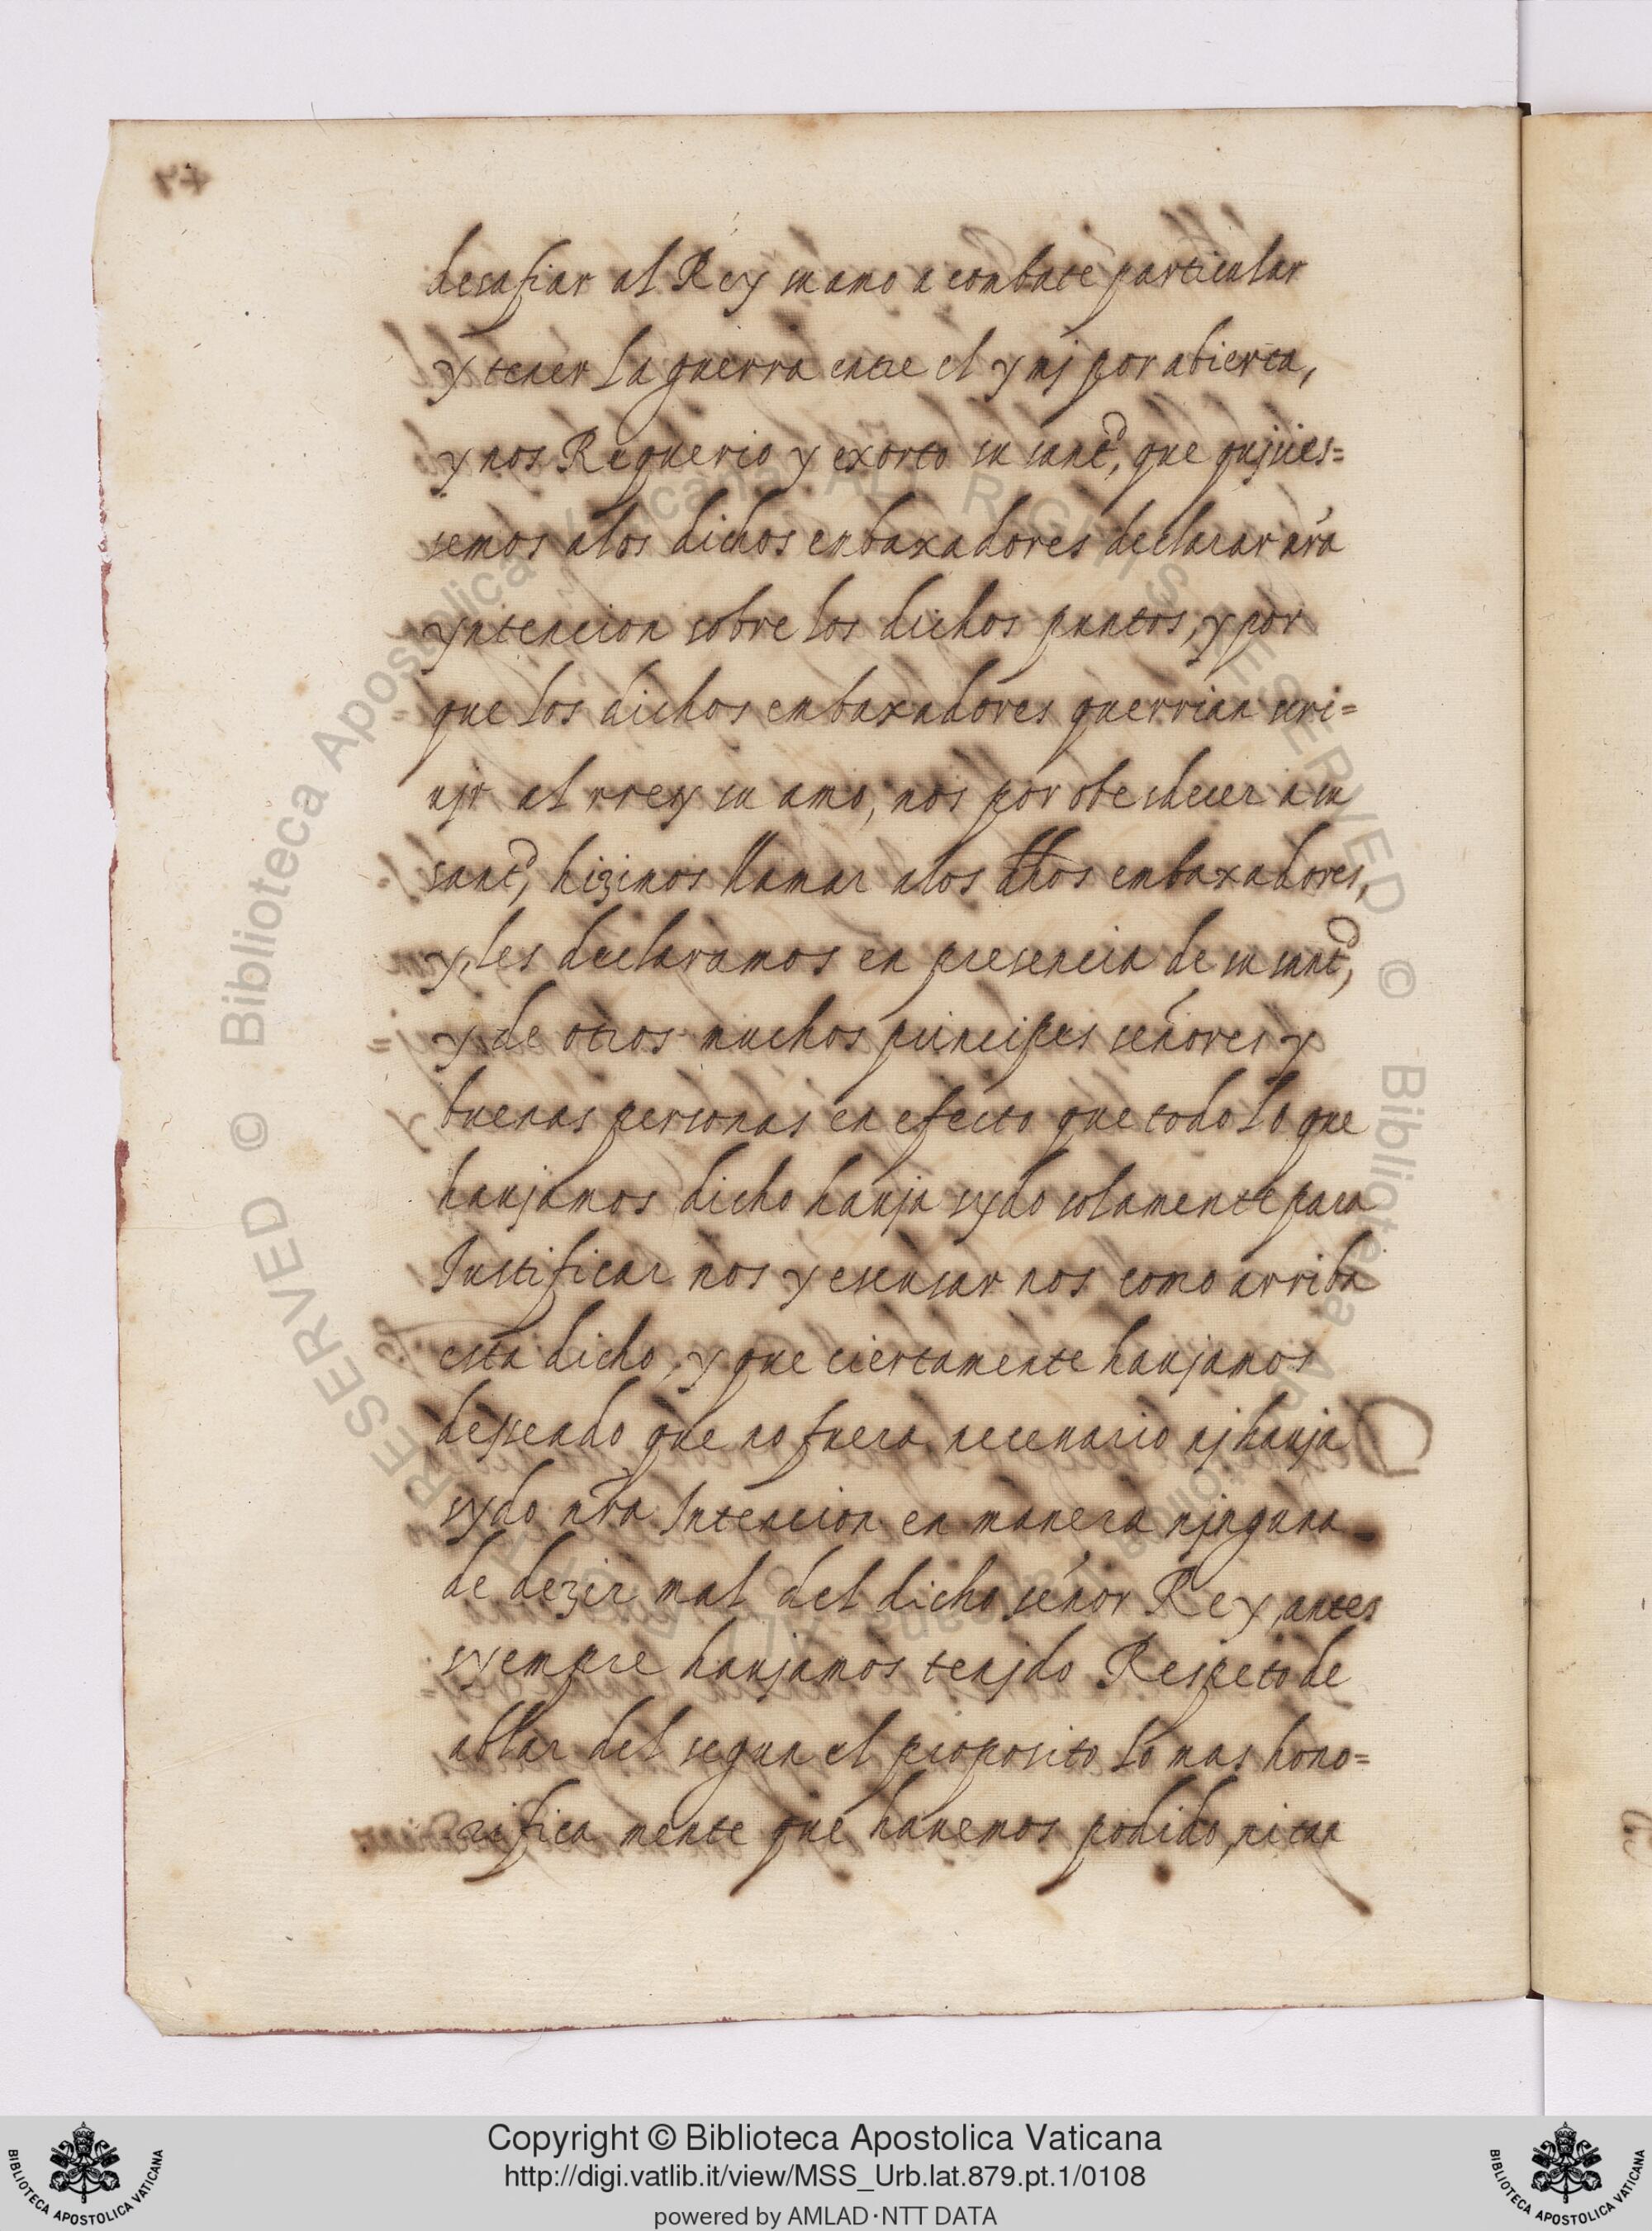 desafiar al Rey su amo a conbate particular
y tener la guerra entre el y mj por abierta,
y nos Requerio y exorto su santd, que qujsies=
semos a los dichos enbaxadores declarar nra
yntencion sobre los dichos puntos, y por
que los dichos enbaxadores querrian scri=
ujr al rrey su amo, nos por obedecer a su
santd, hizimos llamar a los dhos embaxadores,
y les declaramos en presencia de su santd,
y de otros muchos principes señores y
buenas personas en efecto que todo lo que
haujamos dicho hauja sydo solamente para
Justificar nos y escusar nos como arriba
esta dicho, y que ciertamente haujamos
desseado que no fuera necessario nj hauja
sydo nra Intencion en manera njnguna
de dezir mal del dicho señor Rey, antes
syempre haujamos tenjdo Respeto de
ablar del segun el proposito lo mas hono=
rifica mente que hauemos podido,
Copyright © Biblioteca Apostolica Vaticana
http://digi.vatlib.it/view/MSS_Urb.lat.879.pt.1/0108
powered by AMLAD·NTT DATA
BIBLIOTECA APOSTOLICA VATICANA
BIBLIOTECA APOSTOLICA VATICANA